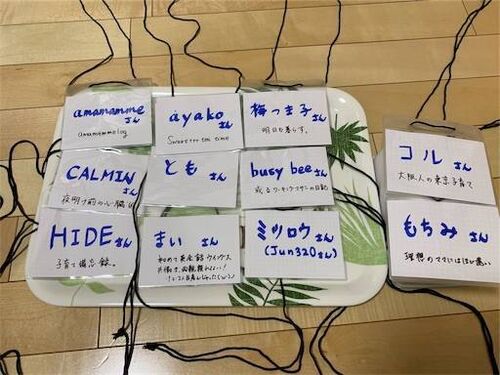 amamamme さん
amamammelog
ayako さん
梅つま子 さん
明日も暮らす。
CALMIN さん
とも さん
busy bee さん
或るワーキングマザーの日記
HIDE さん
子育て備忘録。
まい さん
ミツロウ さん
(Jun320さん)
コル さん
大阪人の東京子育て
もちみ さん
理想のママにはほど遠い